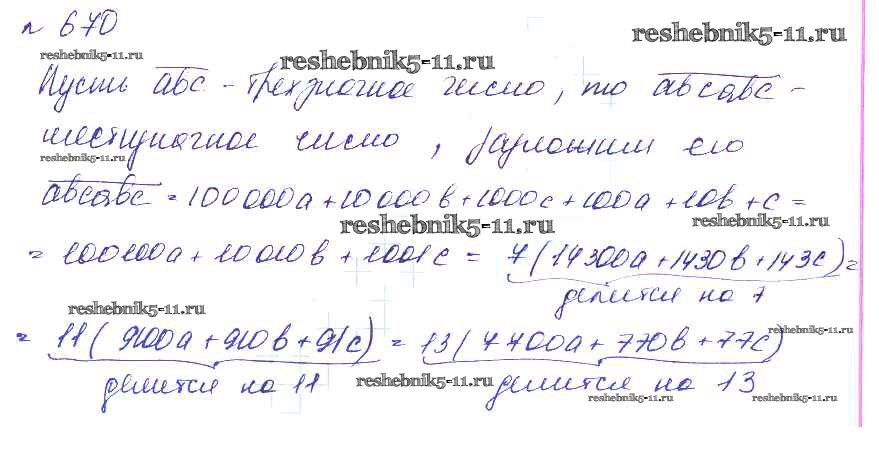 n 670
reshebnik5-11.ru
reshebnik5-11.ru
reshebnik5-11.ru
Пусть abc - трехзначное число, то abcabc -
шестизначное число, разложим его
reshebnik5-11.ru
abcabc = 100000a + 10000b + 1000c + 100a + 10b + c =
reshebnik5-11.ru
reshebnik5-11.ru
= 100100a + 10010b + 1001c = 7(14300a + 1430b + 143c) =
делится на 7
reshebnik5-11.ru
= 11(9100a + 910b + 91c) = 13(7700a + 770b + 77c)
reshebnik5-11.ru
делится на 11
reshebnik5-11.ru
делится на 13
reshebnik5-11.ru
reshebnik5-11.ru